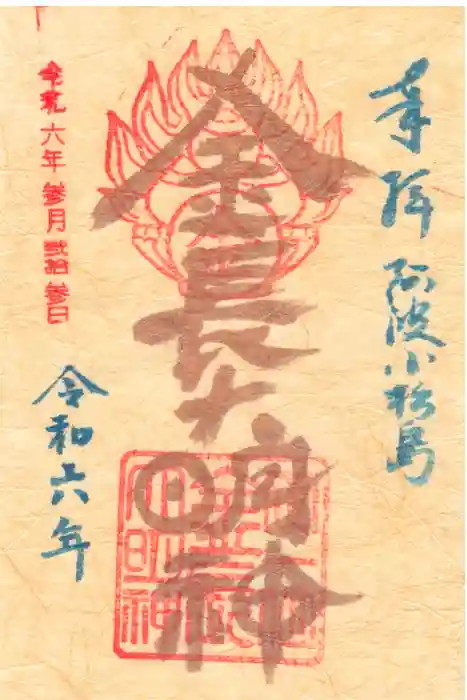 奉拝 阿波小松島
金長大明神
令和六年
令和六年参月弐拾参日